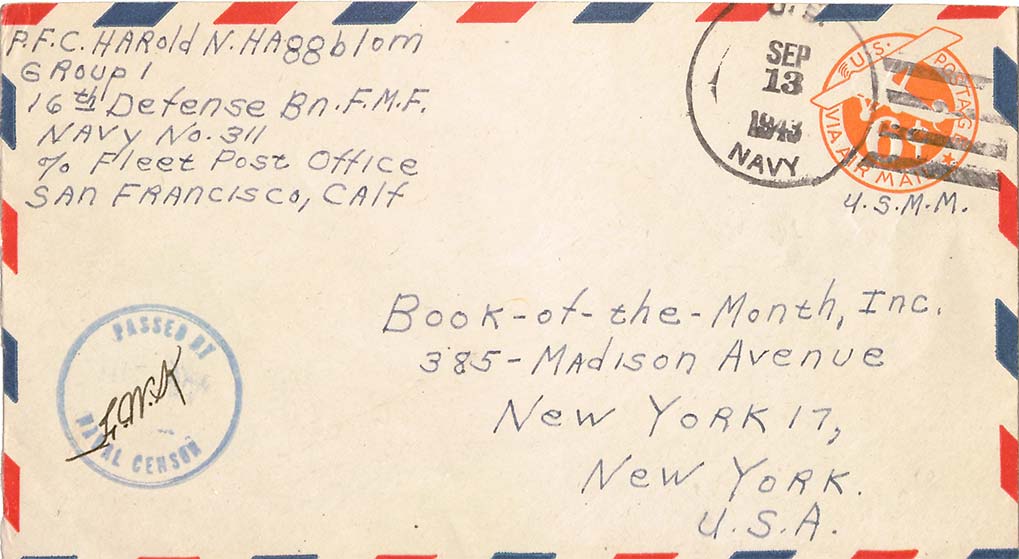 P.F.C. HARold N. HAggblom
GRoup 1
16th Defense Bn. F.M.F.
NAVy No. 311
c/o Fleet Post Office
SAN FRANcisco, CAlf
U.S.
SEP
13
1943
NAVY
U.S. POSTAGE
6¢
VIA AIR MAIL
U.S.M.M.
PASSED BY
F.W.K
NAVAL CENSOR
Book-of-the-Month, Inc.
385-MAdison Avenue
New York 17,
New York.
U.S.A.